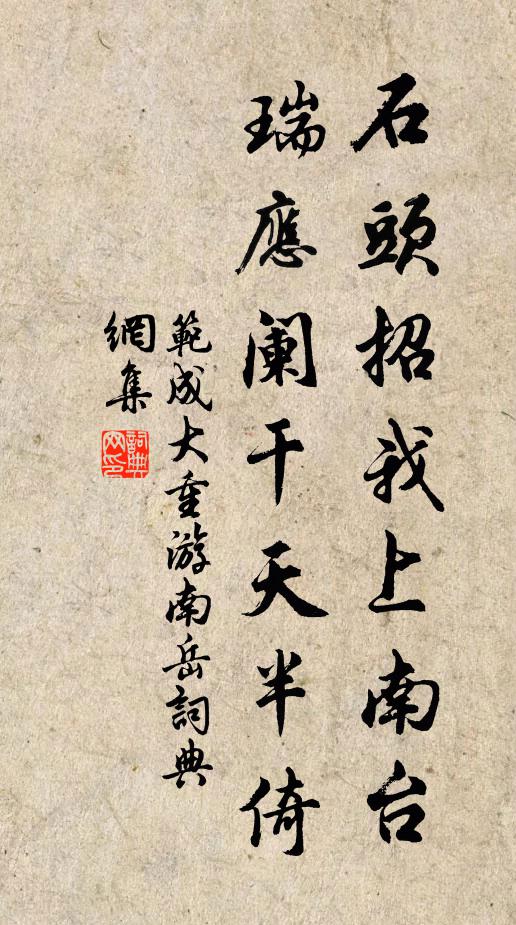 石頭招我上南台
瑞應阑干天半倚
範成大重游南岳詞典
網集
詞典
网印